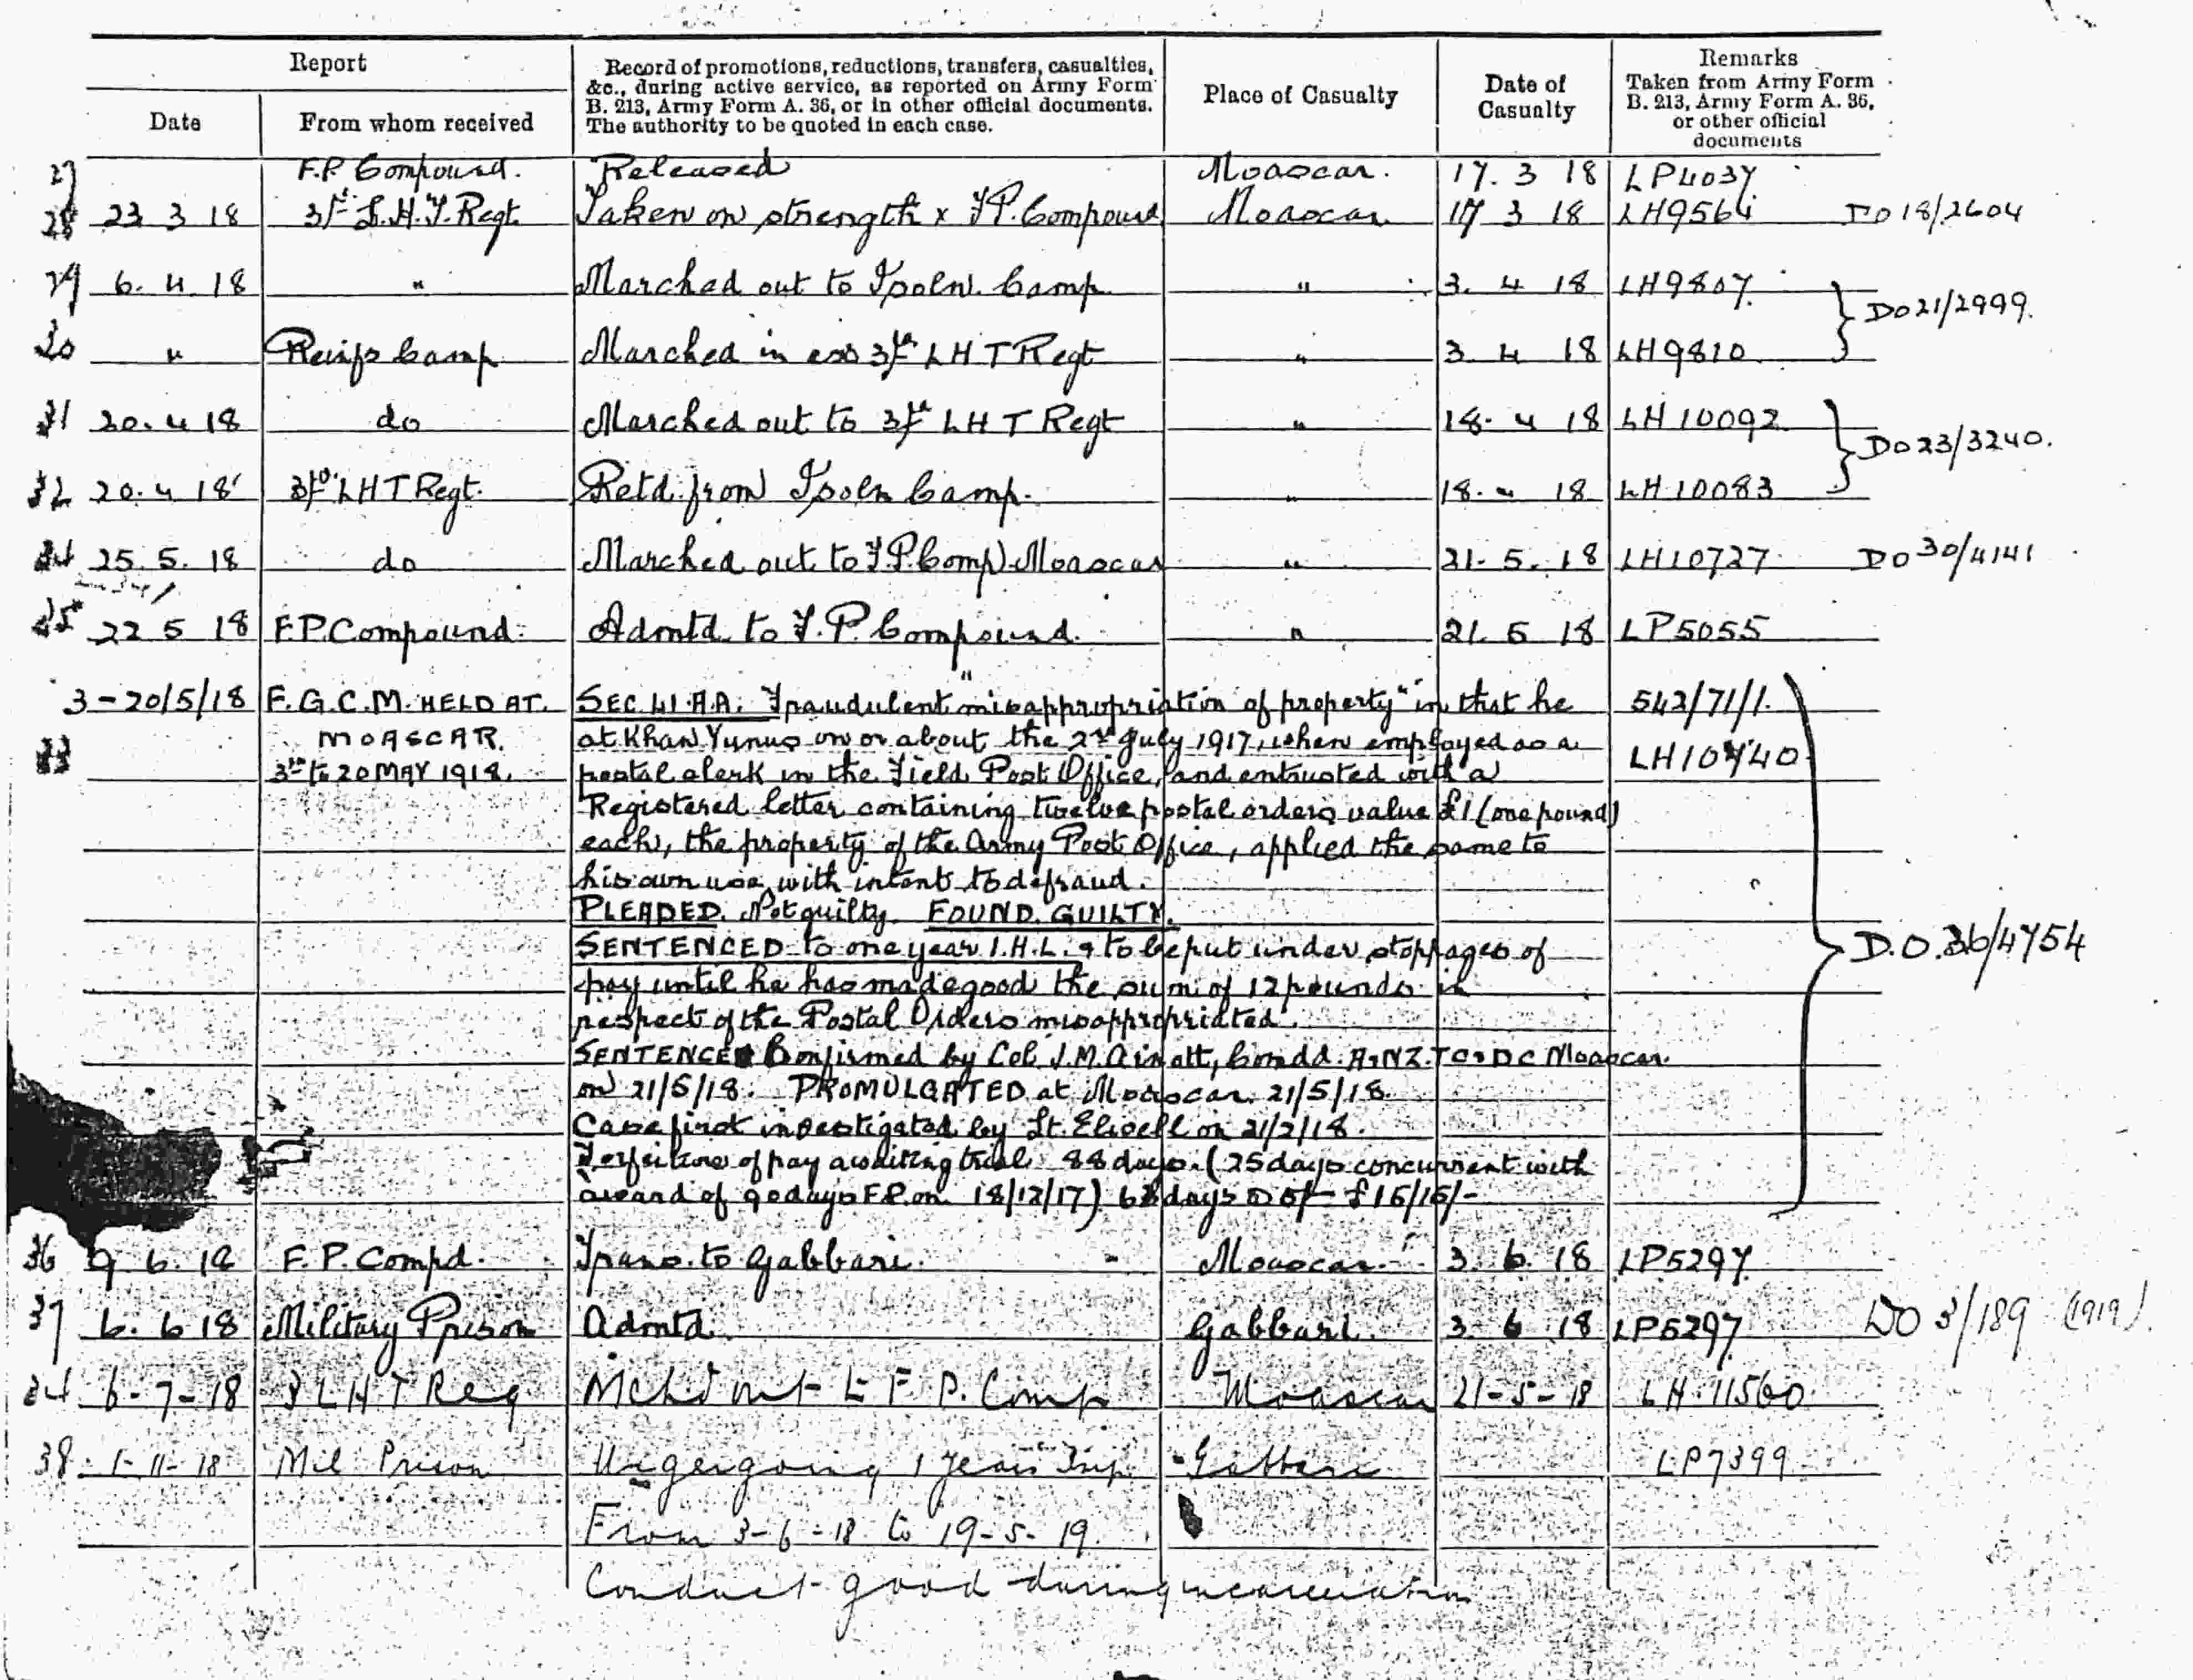 Report
Record of promotions, reductions, transfers, casualties, &c., during active service, as reported on Army Form B. 213, Army Form A. 36, or in other official documents. The authority to be quoted in each case.
Place of Casualty
Date of Casualty
Remarks Taken from Army Form B. 213, Army Form A. 36, or other official documents
Date
From whom received
27 F.P. Compound. Released Moascar. 17. 3 18 LP4037
28 23 3 18 3rd L.H.T. Regt. Taken on strength x F.P. Compound Moascar 17 3 18 LH9564 DO 18/2604
29 6. 4. 18 " Marched out to Isoln. Camp " 3. 4 18 LH9807
DO 21/2999.
30 " Reinfs Camp Marched in ex 3rd LHT Regt " 3 4 18 LH9810
31 20. 4 18 do Marched out to 3rd LHT Regt " 18. 4 18 LH 10092
DO 23/3240.
32 20. 4 18 3rd LHT Regt. Retd. from Isoln Camp. " 18. 4 18 LH 10083
34 25. 5. 18 do Marched out to F.P. Comp) Moascar " 21. 5. 18 LH10727 DO 30/4141
35 22 5 18 F.P. Compound. Admtd. to F.P. Compound. " 21. 5 18 LP5055
3-20/5/18 F.G.C.M. HELD AT SEC. 41. A.A. "Fraudulent misappropriation of property" in that he 542/71/1.
MOASCAR. at Khan Yunus on or about the 2nd July 1917, when employed as a LH10740
33 3rd to 20 MAY 1918. postal clerk in the Field Post Office, and entrusted with a
Registered letter containing twelve postal orders value £1 (one pound)
each, the property of the Army Post Office, applied the same to
his own use, with intent to defraud.
PLEADED. Not guilty. FOUND. GUILTY.
SENTENCED to one year I.H.L. & to be put under stoppages of D.O. 36/4754
pay until he has made good the sum of 12 pounds in
respect of the Postal Orders misappropriated.
SENTENCE Confirmed by Col. J.M. Commdd. A & NZ. TC & DC Moascar
on 21/5/18. PROMULGATED at Moascar. 21/5/18.
Case first investigated by Lt. Elwell on 21/2/18.
Forfeiture of pay awaiting trial 88 days. (25 days concurrent with
award of 90 days F.P. on 18/12/17) days @ 5/- £15/15/-
36 9. 6. 18 F.P. Compd. Trans. to Gabbari. Moascar. 3. 6. 18 LP5297
37 6. 6 18 Military Prison Admtd. Gabbari. 3 6 18 LP5297 DO 3/189 (1919).
34 6-7-18 3 LHT Reg Mchd out to F.P. Comp Moascar 21-5-18 LH 11560
38 1-11-18 Mil Prison Undergoing 1 years Imp. Gabbari LP7399
From 3-6-18 to 19-5-19.
Conduct good during incarceration